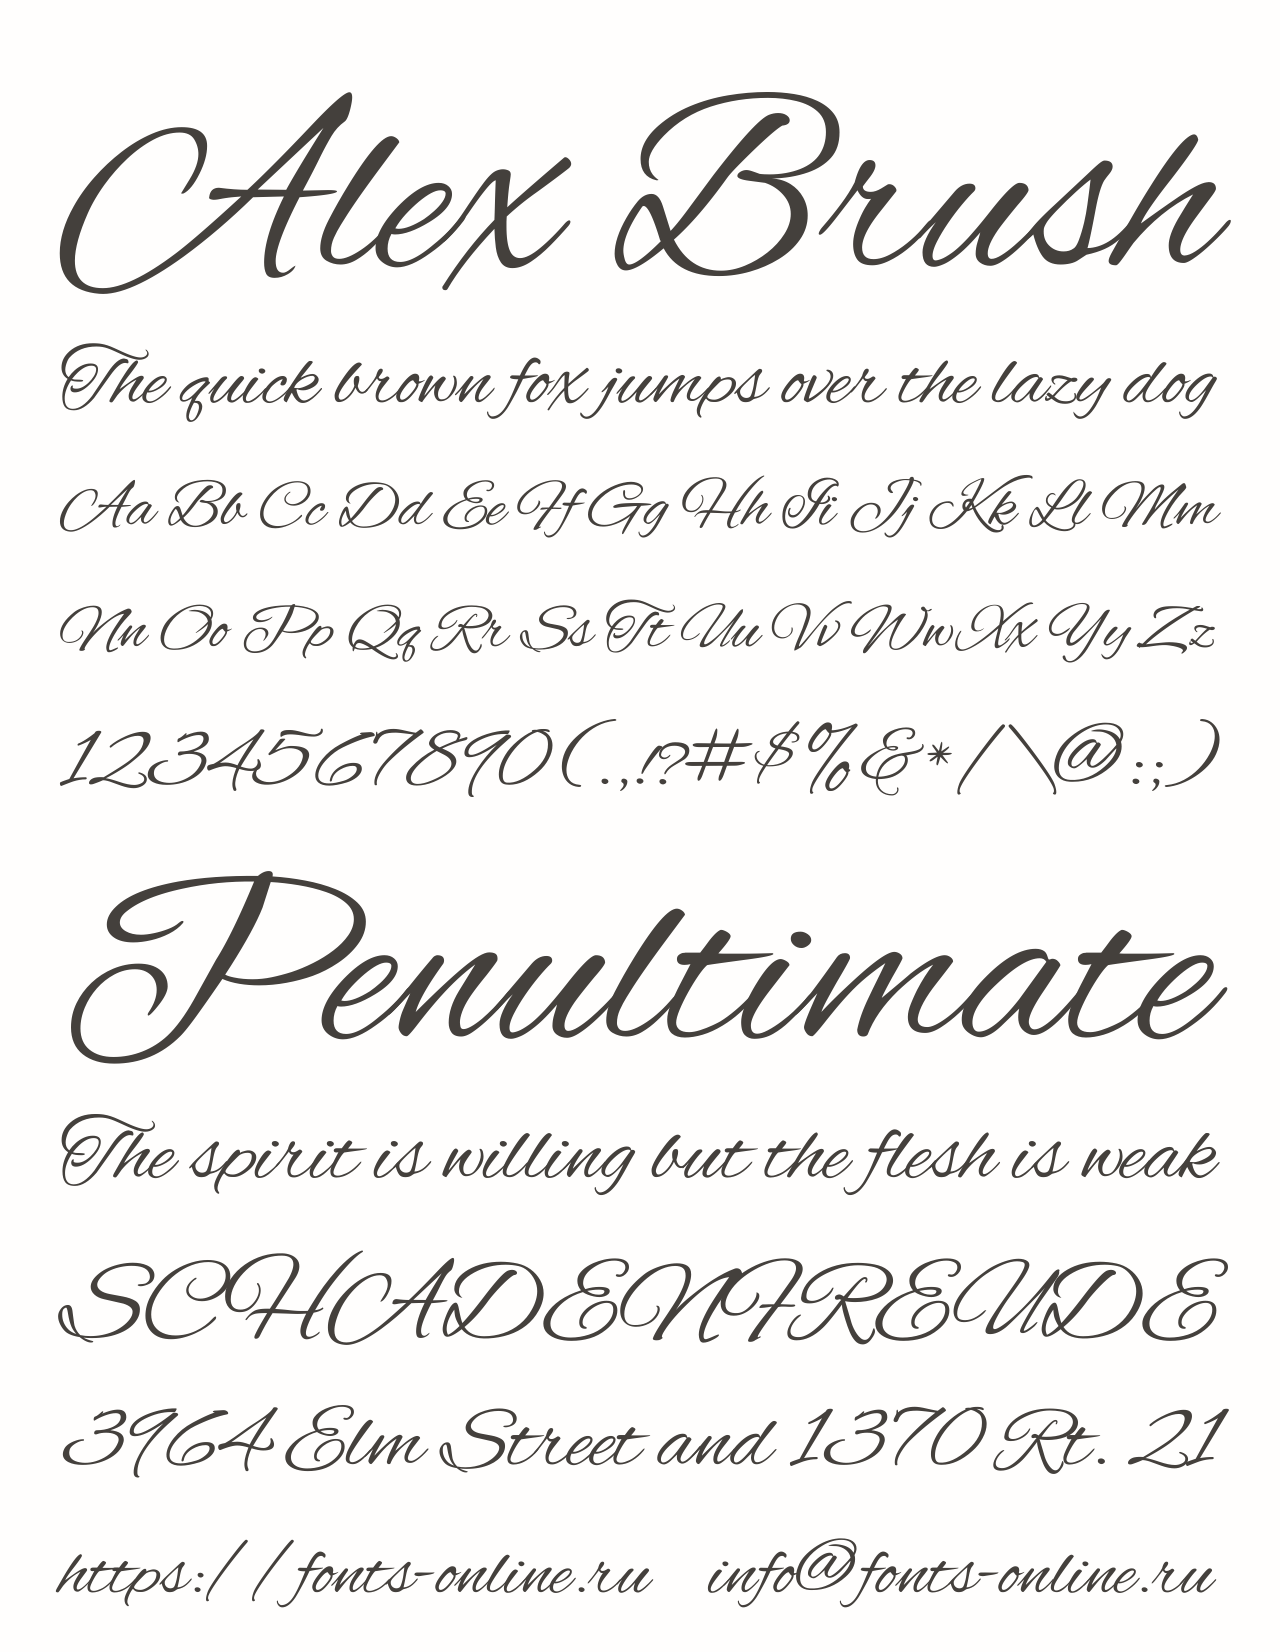 Alex Brush
The quick brown fox jumps over the lazy dog
Aa Bb Cc Dd Ee Ff Gg Hh Ii Jj Kk Ll Mm
Nn Oo Pp Qq Rr Ss Tt Uu Vv Ww Xx Yy Zz
1234567890(.,!?#$%&*/\@:;)
Penultimate
The spirit is willing but the flesh is weak
SCHADENFREUDE
3964 Elm Street and 1370 Rt. 21
https://fonts-online.ru info@fonts-online.ru